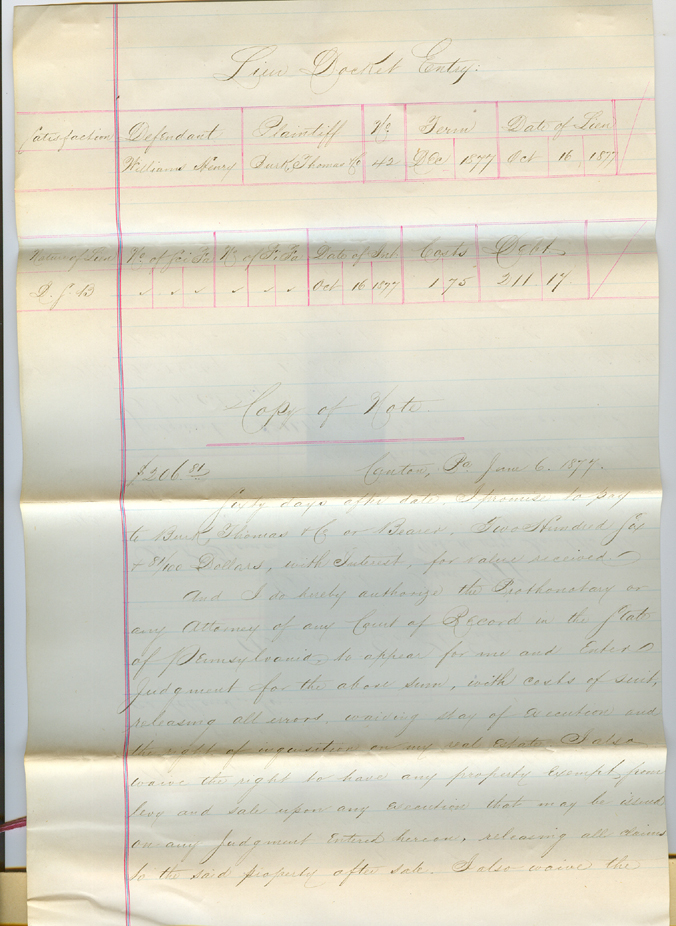 Lien Docket Entry.
Satisfaction Defendant Plaintiff No. Term Date of Lien
Williams Henry Burk, Thomas & Co 42 Dec 1877 Oct 16 1877
Nature of Lien No. of Sci Fa No. of Fi. Fa Date of Int Costs Debt
D. S. B Oct 16 1877 1.75 211 17
Copy of Note.
$206.81 Canton, Pa. June 6. 1877.
Sixty days after date, I promise to pay
to Burk, Thomas & Co or Bearer, Two Hundred Six
& 81/100 Dollars, with Interest, for value received.
And I do hereby authorize the Prothonotary or
any Attorney of any Court of Record in the State
of Pennsylvania, to appear for me and Enter
Judgment for the above sum, with costs of suit,
releasing all errors, waiving stay of execution and
the right of inquisition on my real estate I also
waive the right to have any property exempt from
levy and sale upon any execution that may be issued
on any Judgment Entered hereon, releasing all claims
to the said property after sale. I also waive the